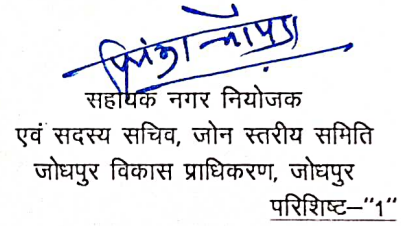 प्रियंका चौपडा
सहायक नगर नियोजक
एवं सदस्य सचिव, जोन स्तरीय समिति
जोधपुर विकास प्राधिकरण, जोधपुर
परिशिष्ट–"1"